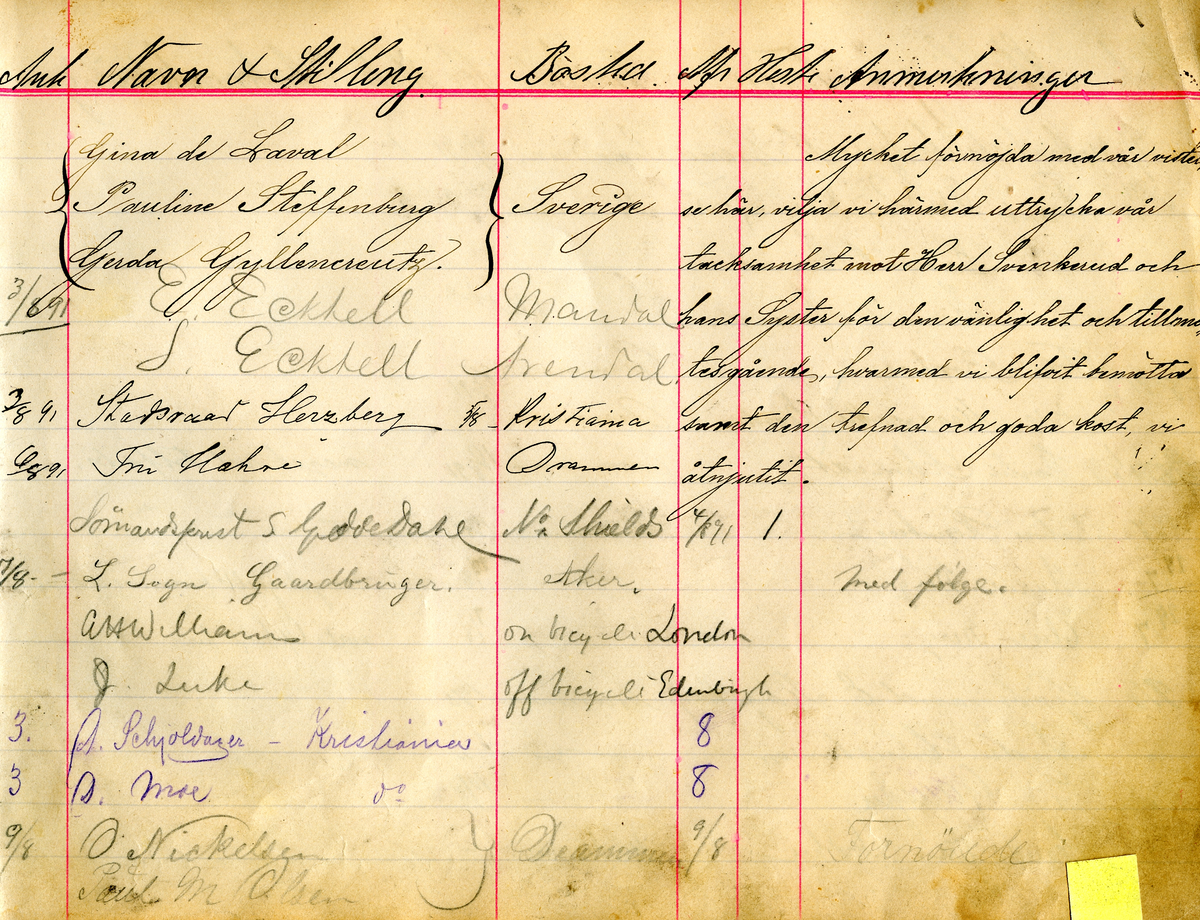 Ank Navn & Stilling Bosted Afr Heste Anmerkninger
Gina de Laval
Pauline Steffenburg Sverige
Gerda Gyllencreutz.
Mycket förnöjda med vår vistel
se här, vilja vi härmed uttrycka vår
tacksamhet mot Herr Svenkerud och
hans Syster för den vänlighet och tillmö
tesgående, hvarmed vi blifvit bemötta
samt den trefnad och goda kost, vi
åtnjutit.
3/8 91 E. Ecktell Mandal
S. Ecktell Arendal
3/8 91 Stadsraad Herzberg 5/8 - Kristiania
6/8 91 Drammen
Sömandsprest S No Shields 4/8 91 1.
7/8 - L. Sogn Gaardbruger. Aker. Med følge.
AHWilliams on bicycle London
J. Luke off bicycle Edinburgh
3. A. Schjoldager - Kristiania 8
3 D. Moe do 8
9/8 O Nickelsen Drammen 9/8 Fornöiede
Paul M Olsen